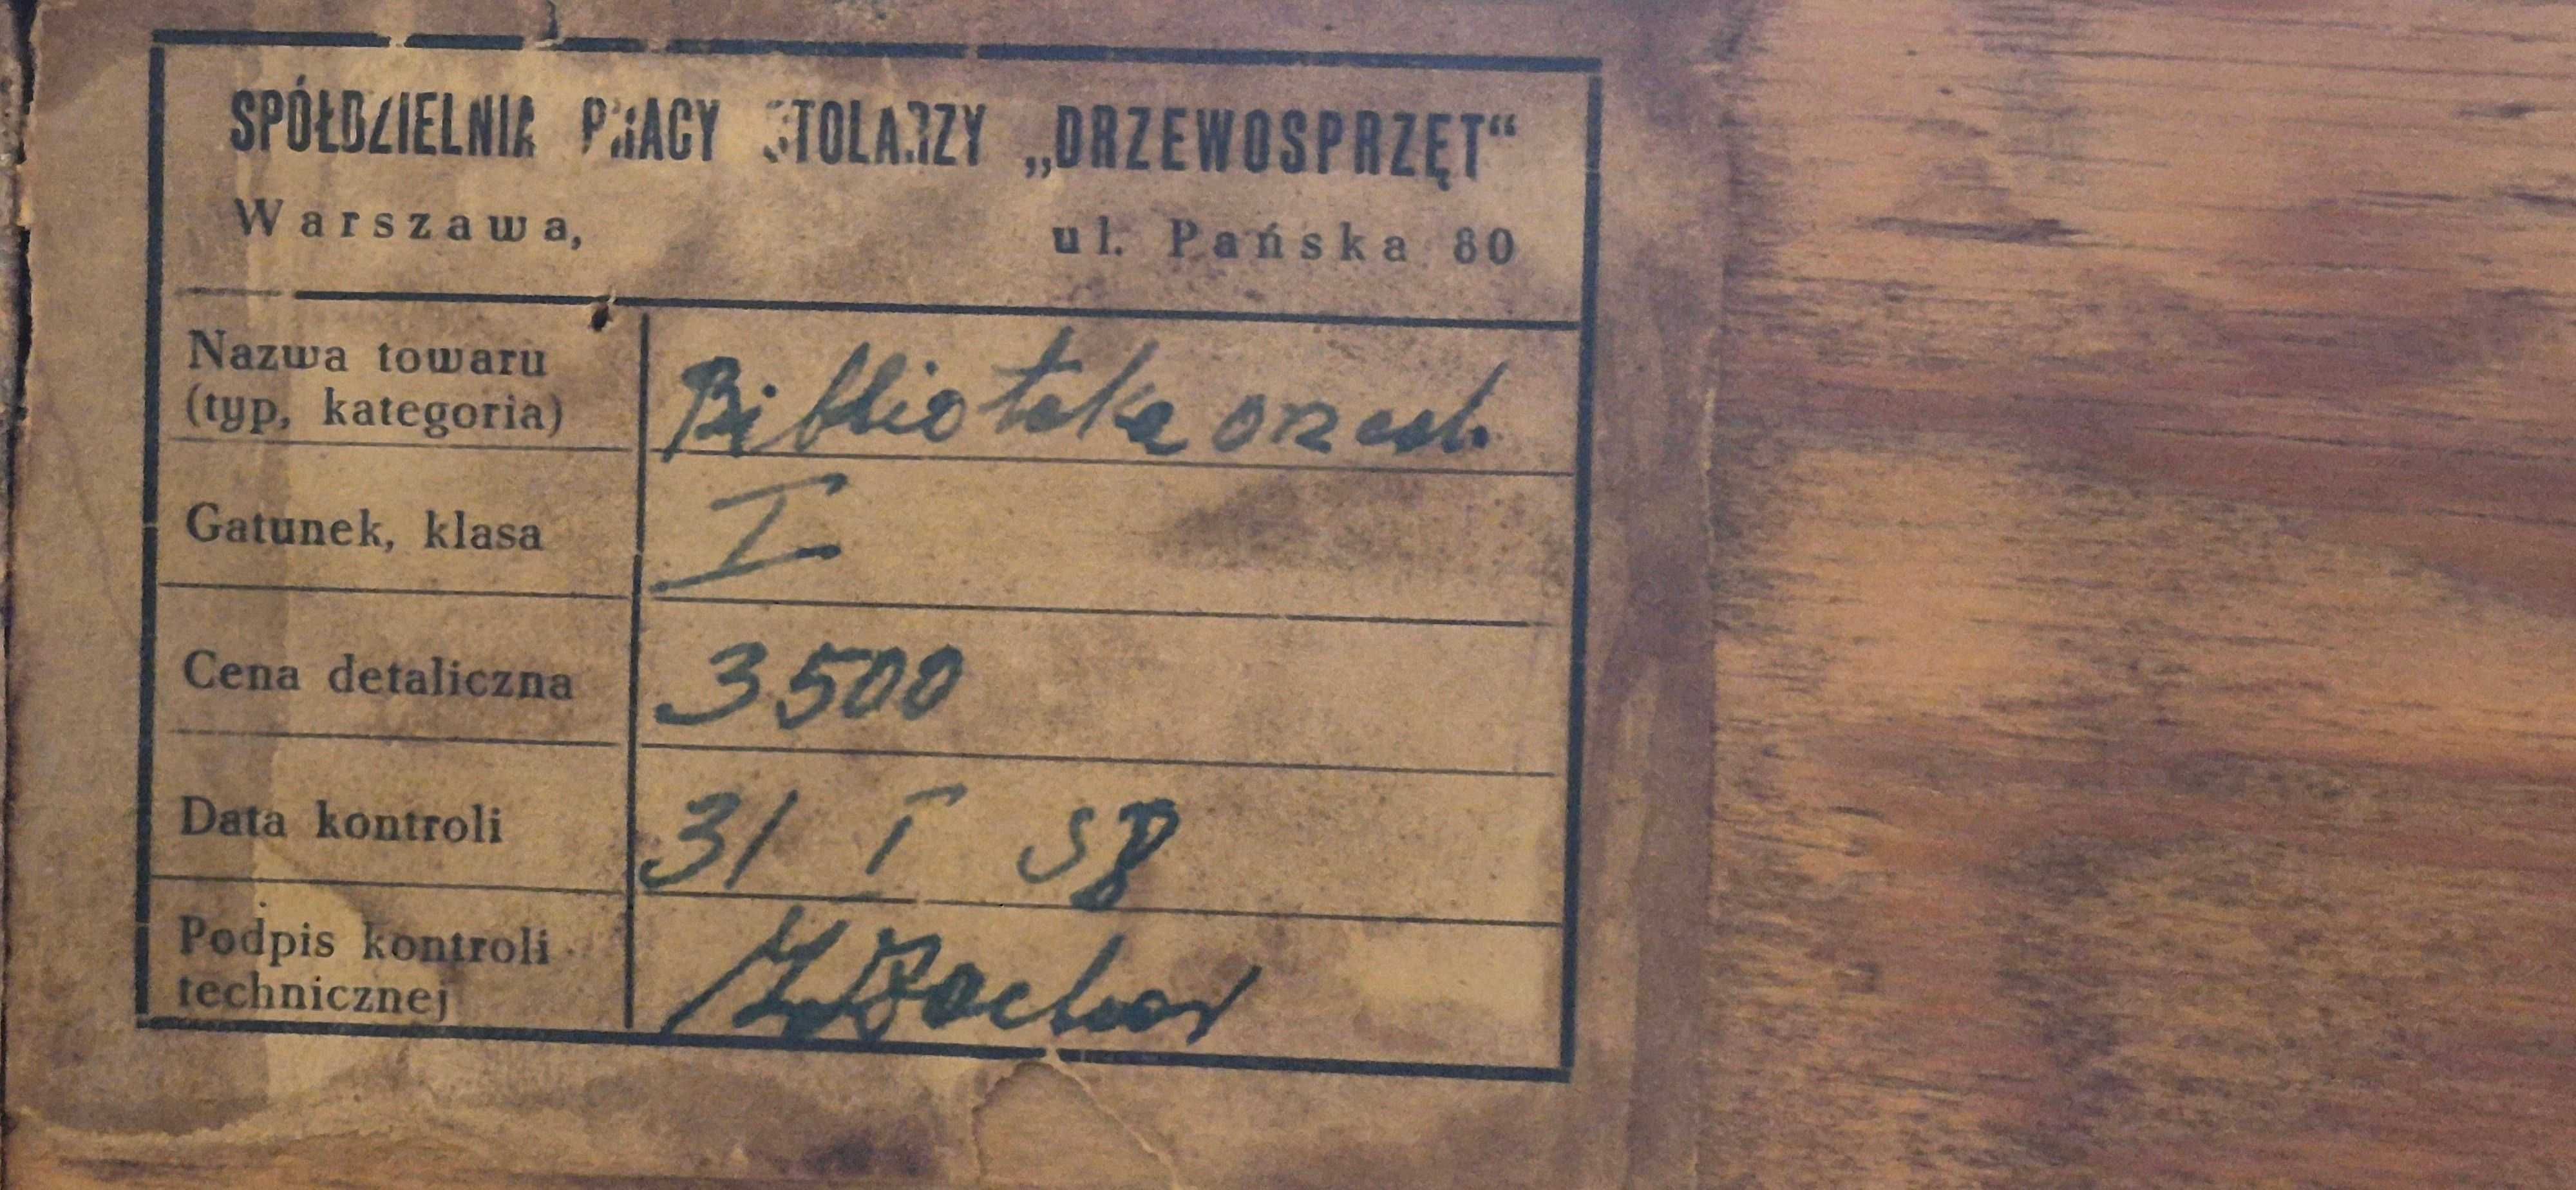 SPÓŁDZIELNIA PRACY STOLARZY „DRZEWOSPRZĘT“
Warszawa, ul. Pańska 80
Nazwa towaru
(typ, kategoria) Biblioteka orzech.
Gatunek, klasa I
Cena detaliczna 3500
Data kontroli 31 I 58
Podpis kontroli
technicznej